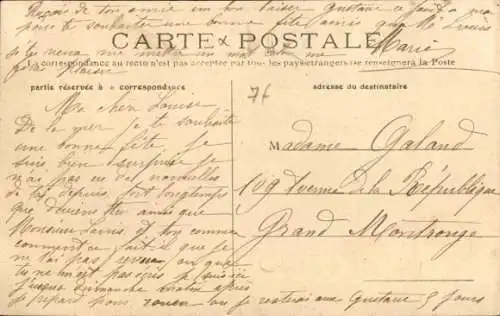 Reçois de ton amie un bon baiser Gustave se joint a moi
pour te souhaiter une bonne fête ainsi que
Marie
CARTE POSTALE
La correspondance au recto n'est pas acceptée par tous les pays étrangers se renseigner à la Poste
partie réservée à la correspondance
adresse du destinataire
76
Ma cher Louise
De la mer je te souhaite
une bonne fête, je
suis bien surprise je
n'ai pas eu des nouvelles
de toi depuis tout longtemps
que deviens tu ainsi que
Monsieur et ton
comment ce fait-il que je
ne t'ai pas revue
tu ne m'ecrit pas je suis ici
jusqua dimanche matin après
je repard pour rouen ou je resterai aux Gustave 5 jours
Madame Galand
109 Avenue de la République
Grand Montrouge